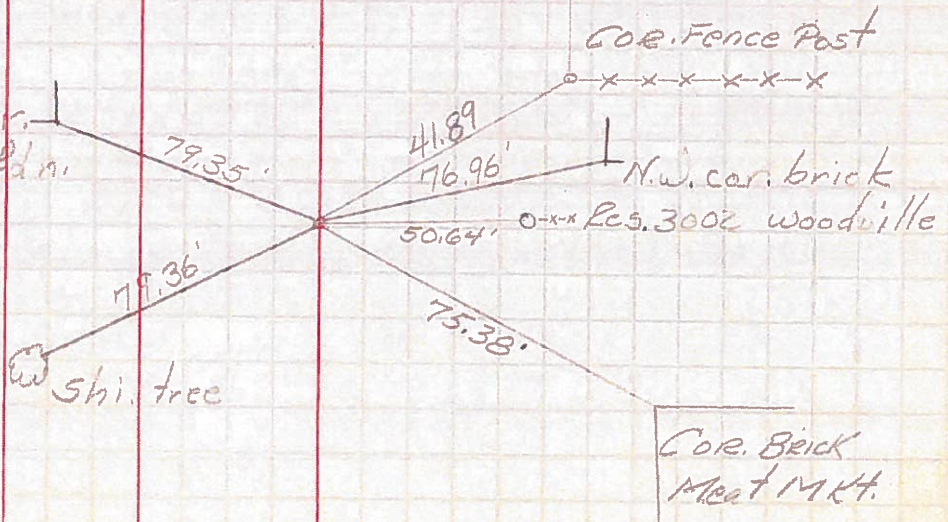 Cor. Fence Post
41.89
79.35'
76.96'
N.W. cor. brick
Res. 3002 woodville
50.64'
79.36'
75.38'
Shi. tree
Cor. Brick
Meat Mkt.